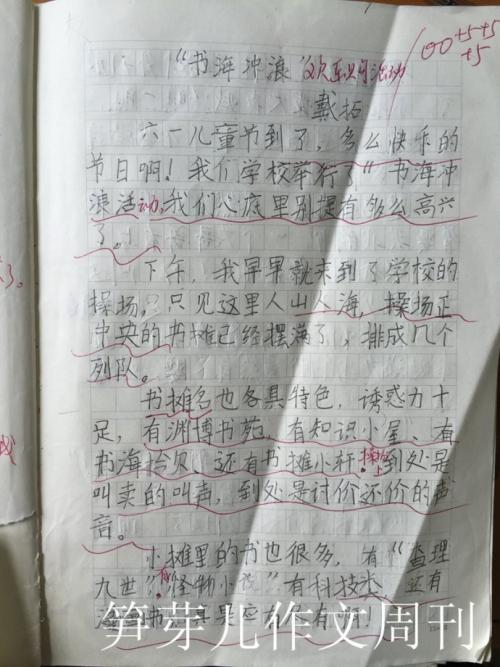 100+5+5
+5
"书海冲浪"欢乐购活动
戴拓
六一儿童节到了，多么快乐的
节日啊！我们学校举行了"书海冲
浪活动，我们心底里别提有多么高兴
了。
下午，我早早就来到了学校的
操场，只见这里人山人海，操场正
中央的书摊已经摆满了，排成几个
列队。
书摊名也各具特色，诱惑力十
足，有渊博书苑、有知识小屋、有
书海拾贝、还有书摊小轩。到处是
叫卖的叫声，到处是讨价还价的声
音。
小摊里的书也很多，有"查理
九世"有科技类 还有
笋芽儿作文周刊